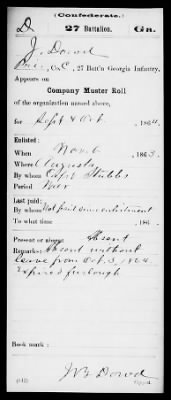 (Confederate.)
D 27 Battalion. Ga.
J. Dowd
Pri, Co. C, 27 Batt'n Georgia Infantry,
Appears on
Company Muster Roll
of the organization named above,
for Sept & Oct, 1864.
Enlisted:
When Nov. 6, 1863.
Where Augusta
By whom Capt Stubbs
Period War
Last paid:
By whom Not paid since enlistment
To what time , 186 .
Present or absent Absent
Remarks: Absent without
leave from Oct. 3, 1864.
Expired furlough
Book mark:
Dowd
(642) Copyist.